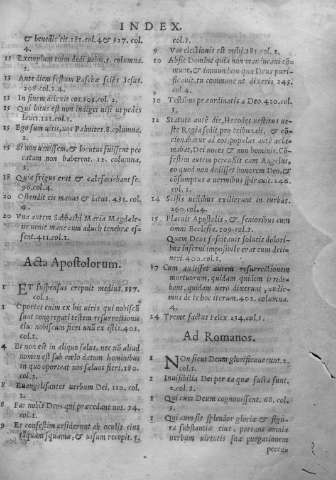 INDEX.
& benedicite. 281. col. 4 & 327. col.
4.
15 Exemplum enim dedi vobis. 5. columna.
2.
13 Ante diem festum Paschæ sciēs Jesus.
298. col. 4.
15 In finem dilexit eos. 305. col. 2.
15 Qui lotus est non indiget nisi ut pedes
lauet. 121. col. 1.
15 Ego sum vitis, vos Palmites. 8. columna.
2.
15 Si non venissem, & locutus fuissem pec
catum non haberent. 12. columna.
3.
18 Quia frigus erat & calefaciebant se.
96. col. 4.
20 Ostendit eis manus & latus. 431. col.
4.
20 Una autem Sabbathi Maria Magdale-
ne venit mane cum adhuc tenebræ es-
sent. 411. col. 1.
Acta Apostolorum.
1 ET suspensus crepuit medius. 197.
col. 1.
1 Oportet enim ex his viris qui nobiscū
sunt congregati testem resurrectionis
eius nobiscum fieri unū ex istis. 401.
col. 1.
4 Et non est in aliquo salus, nec nō aliud
nomen est sub cœlo datum hominibus
in quo oporteat nos salvos fieri. 180.
col. 3.
8 Euangelisantes verbum Dei. 110. col.
2.
8 Fac nobis Deos qui præcedant nos. 74.
col. 1.
9 Et confestim ceciderunt ab oculis eius
tanquam squamæ, & visum recepit. 5.
col. 1.
9 Vas electionis est mihi. 181. col. 1.
10 Absit Domine quia non manducaui cōm
mune, & immundum quod Deus puri-
ficauit, tu commune ne dixeris. 243.
col. 4.
10 Testibus præordinatis a Deo. 420. col.
3.
12 Statuto aute die, Herodes vestitus ve-
ste Regia sedit pro tribunali, & cō-
cionabatur ad eos populus autē accla-
mabat, Dei voces & non hominis. Cō-
festim autem percussit eum Angelus,
eo quod non dedisset honorem Deo, &
consumptus a vermibus spirauit. 246.
col.
14 Scissis vestibus exilierunt in turbas.
269. col. 4.
15 Placuit Apostolis, & senioribus cum
omni Ecclesia. 209. col. 1.
Quem Deus suscitauit solutis dolori-
bus inferni impossibile erat eum detine-
ri 400. col.
17 Cum audissent autem resurrectionem
mortuorum, quidam quidem irride-
bant, quidam vero dixerunt, audie-
mus de te hoc iterum. 402. columna.
4.
24 Tremefactus Felix. 234. col. 1.
Ad Romanos.
1 NOn sicut Deum glorificauerunt. 2.
col. 1.
1 Inuisibilia Dei per ea quæ facta sunt.
2. col. 2.
1 Qui cum Deum cognouissent. 68. col.
3.
1 Qui cum sit splendor gloriæ & figu-
ra substantiæ eius, portans omnia
verbum virtutis suæ purgationem
peccato